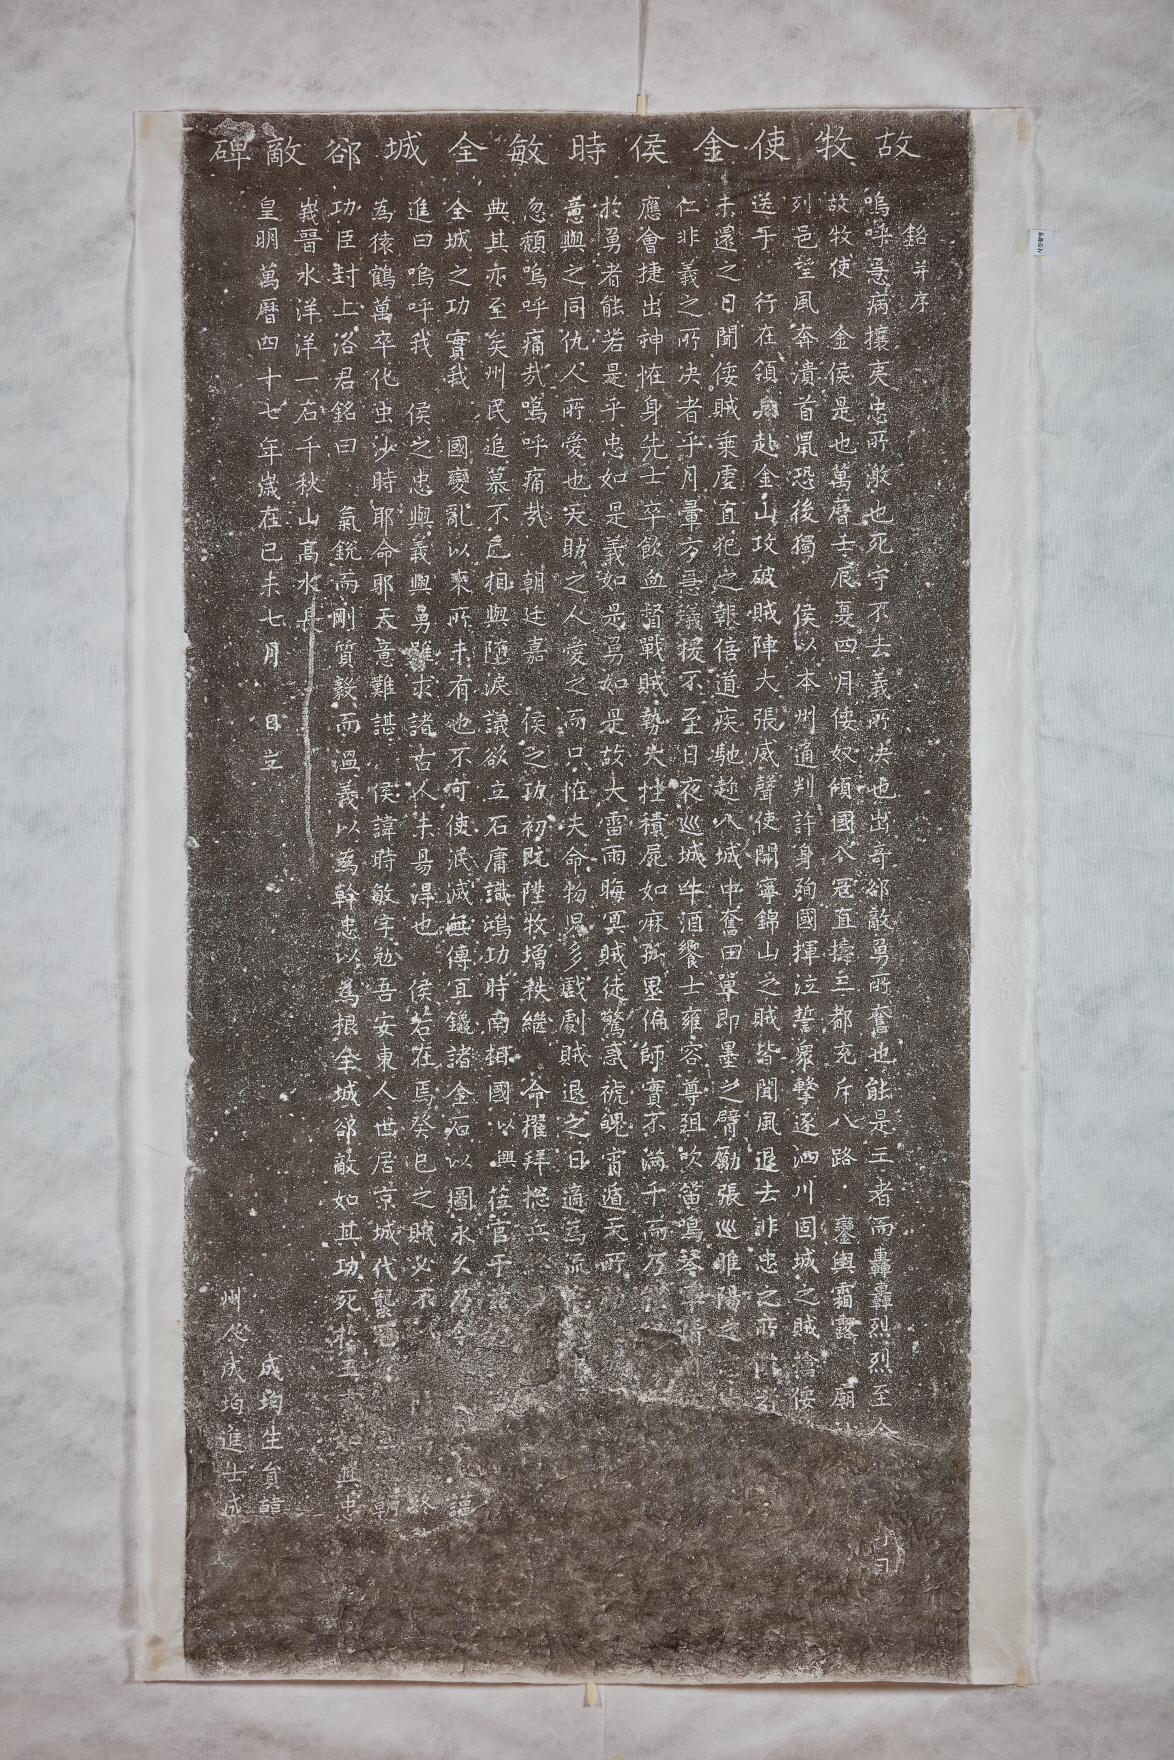 故牧使金侯時敏全城郤敵碑
銘并序
嗚呼急病攘夷忠所激也死守不去義所決也出奇郤敵勇所奮也能是三者而轟轟烈烈至今
故牧使 金侯是也萬曆壬辰夏四月倭奴傾國入冦直擣三都充斥八路 鑾輿霜露 廟社
列邑望風奔潰首鼠恐後獨 侯以本州通判許身殉國揮泣誓衆擊逐泗川固城之賊擒倭
送于 行在領兵赴金山攻破賊陣大張威聲使開寧錦山之賊皆聞風退去非忠之所
未還之日聞倭賊乘虛直犯之報倍道疾馳趍入城中奮田單即墨之臂勵張巡睢陽之
仁非義之所決者乎月暈方急蟻援不至日夜巡城牛酒饗士雍容尊俎吹笛鳴琴
應會捷出神恠身先士卒飮血督戰賊勢大挫積屍如麻孤壘偏師實不滿千而乃
於勇者能若是乎忠如是義如是勇如是故大雷雨晦冥賊徒驚惑禠魄宵遁天所
意與之同仇人所愛也天助之人愛之而只恠夫命物兒多戲劇賊退之日適爲流
忽頹嗚呼痛哉嗚呼痛哉 朝廷嘉 侯之功初旣陞牧增秩繼 命擢拜捴兵
典其亦至矣州民追慕不已相與墮淚議欲立石庸識鴻功時南相國以興莅官于
全城之功實我 國變亂以來所未有也不可使泯滅無傳宜鑱諸金石以圖永久乃令
進曰嗚呼我 侯之忠與義與勇雖求諸古人未易得也 侯若在焉癸巳之賊必不
爲猿鶴萬卒化虫沙時耶命耶天意難諶 侯諱時敏字勉吾安東人世居京城代襲冠 朝
功臣封上洛君銘曰 氣銳而剛質毅而溫義以爲幹忠以爲根全城郤敵如其功死於
峩晉水洋洋一石千秋山高水長
皇明萬曆四十七年歲在己未七月 日立
成均生員韓
州人成均進士成